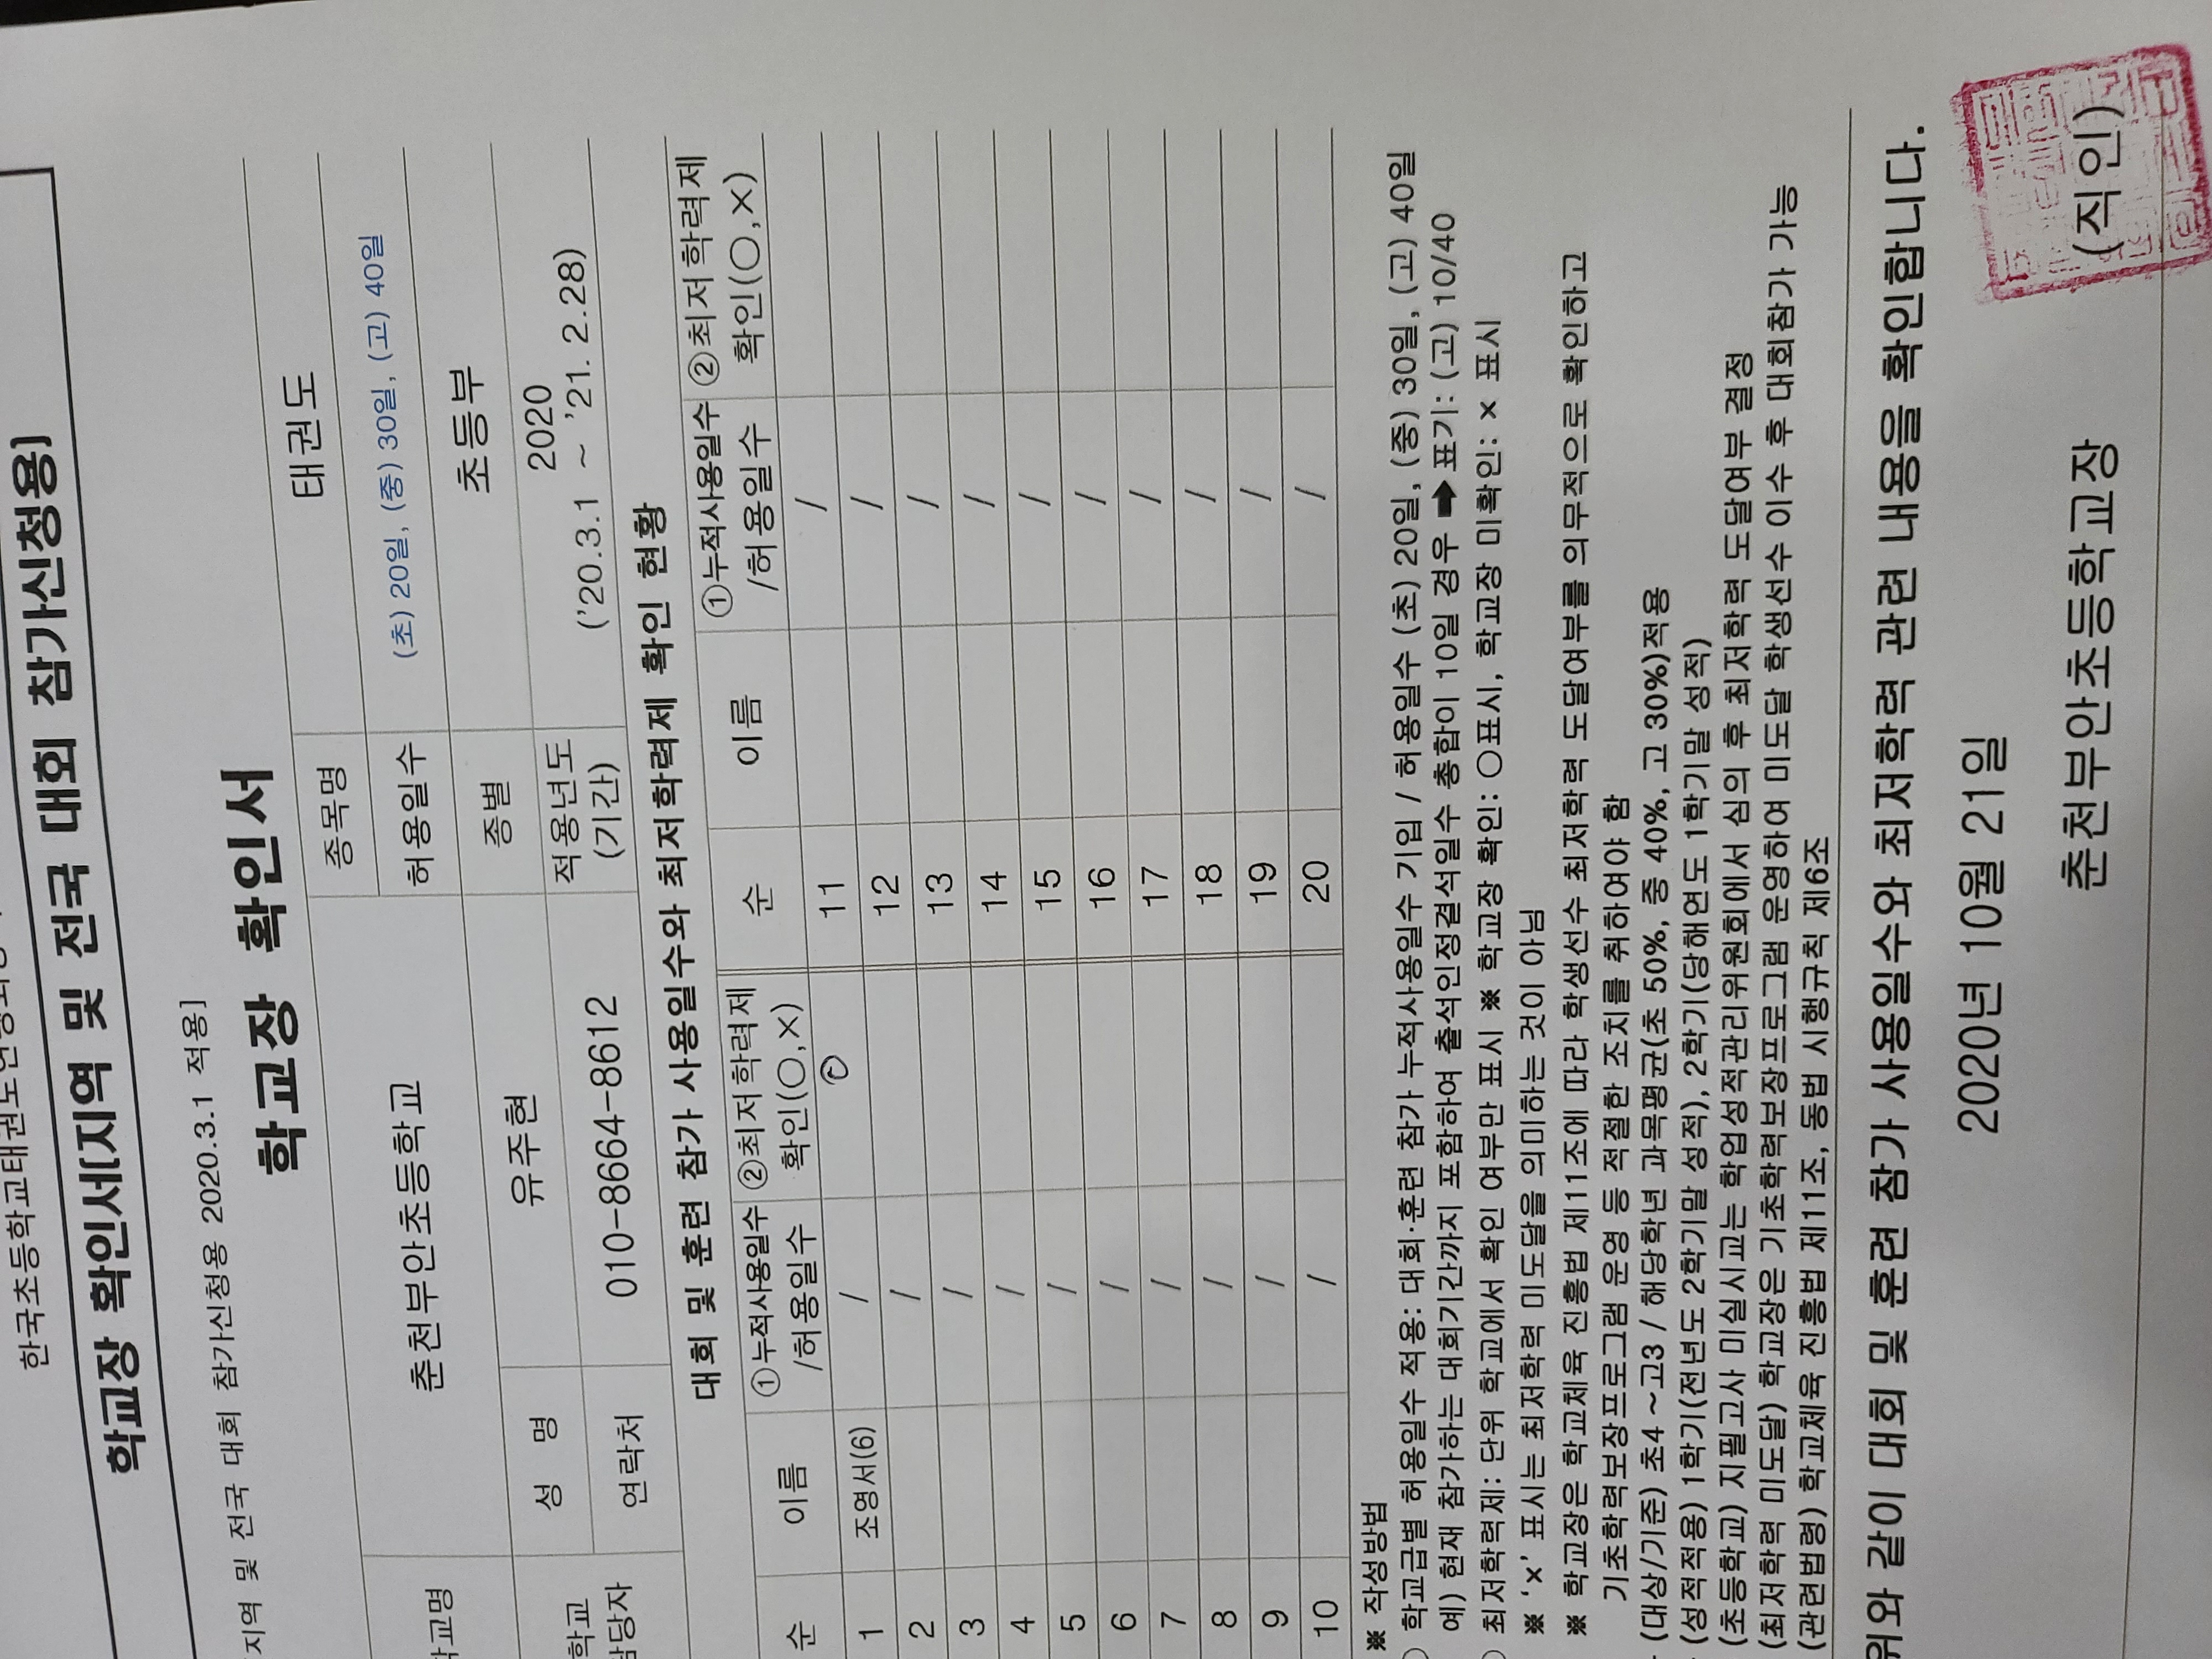 한국초등학교태권도연맹
학교장 확인서[지역 및 전국 대회 참가신청용]
지역 및 전국 대회 참가신청용 2020.3.1 적용]
학교장 확인서
학교명
춘천부안초등학교
종목명
태권도
허용일수
(초) 20일, (중) 30일, (고) 40일
학교
담당자
성 명
유주현
종별
초등부
연락처
010-8664-8612
적용년도
(기간)
2020
('20.3.1 ~ '21. 2.28)
대회 및 훈련 참가 사용일수와 최저학력제 확인 현황
순 이름 ①누적사용일수 /허용일수 ②최저학력제 확인(○,×) 순 이름 ①누적사용일수 /허용일수 ②최저학력제 확인(○,×)
1 조영서(6) / ○ 11 /
2 / 12 /
3 / 13 /
4 / 14 /
5 / 15 /
6 / 16 /
7 / 17 /
8 / 18 /
9 / 19 /
10 / 20 /
※ 작성방법
학교급별 허용일수 적용: 대회·훈련 참가 누적사용일수 기입 / 허용일수 (초) 20일, (중) 30일, (고) 40일
예) 현재 참가하는 대회기간까지 포함하여 출석인정결석일수 총합이 10일 경우 ➡ 표기: (고) 10/40
최저학력제: 단위 학교에서 확인 여부만 표시 ※ 학교장 확인: ○표시, 학교장 미확인: × 표시
※ '×' 표시는 최저학력 미도달을 의미하는 것이 아님
※ 학교장은 학교체육 진흥법 제11조에 따라 학생선수 최저학력 도달여부를 의무적으로 확인하고
기초학력보장프로그램 운영 등 적절한 조치를 취하여야 함
(대상/기준) 초4 ~고3 / 해당학년 과목평균(초 50%, 중 40%, 고 30%)적용
(성적적용) 1학기(전년도 2학기말 성적), 2학기(당해연도 1학기말 성적)
(초등학교) 지필고사 미실시교는 학업성적관리위원회에서 심의 후 최저학력 도달여부 결정
(최저학력 미도달) 학교장은 기초학력보장프로그램 운영하여 미도달 학생선수 이수 후 대회참가 가능
(관련법령) 학교체육 진흥법 제11조, 동법 시행규칙 제6조
위와 같이 대회 및 훈련 참가 사용일수와 최저학력 관련 내용을 확인합니다.
2020년 10월 21일
춘천부안초등학교장 (직인)